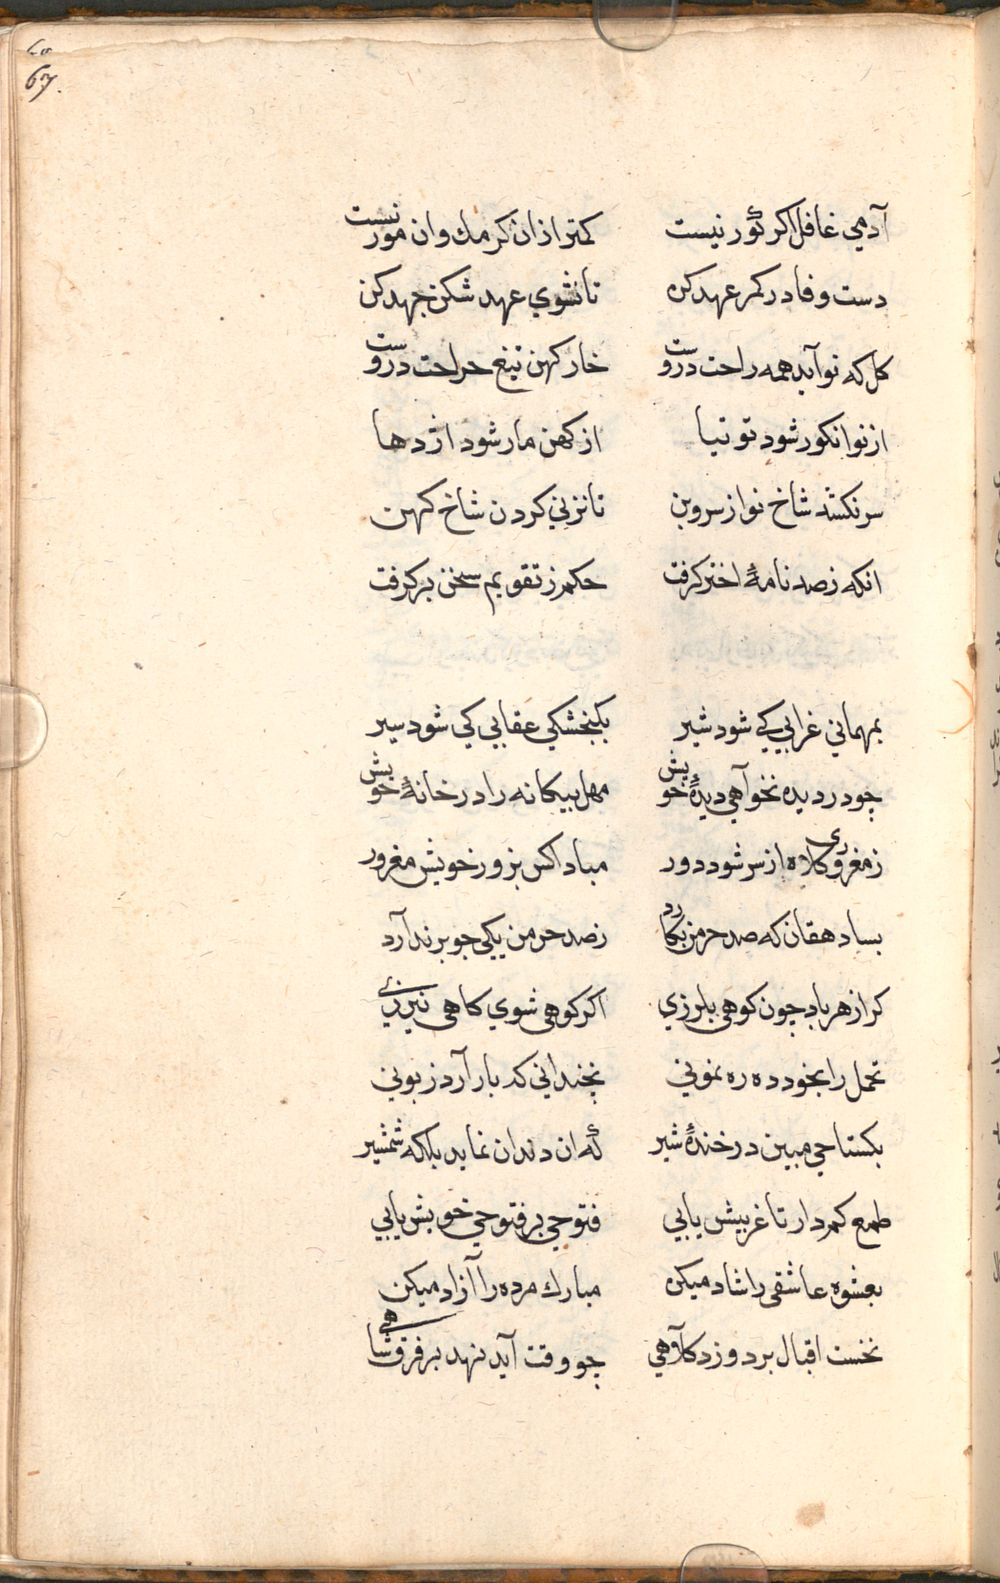 67
آدمي غافل اكر كور نيست كمتر ازان كرمك وان مور نيست
دست وفا در كمر عهد كن تا نشوي عهد شكن جهد كن
كل كه نو آيد همه راحت دروست خار كهن تيغ جراحت دروست
از نو انكور شود توتيا از كهن مار شود اژدها
سر نكشد شاخ نو از سروبن تا نزني كردن شاخ كهن
انكه ز صد نامهٔ اختر كرفت حكم ز تقويم سخن بر كرفت
بمهماني غرابي كي شود شير بكنجشكي عقابي كي شود سير
چو دزديده نخواهي ديدهٔ خويش مهل بيكانه را در خانهٔ خويش
ز مغروري كلاه از سر شود دور مبادا كس بزور خويش مغرور
بسا دهقان كه صد خرمن بكارد ز صد خرمن يكي جو بر ندارد
كر از هر باد چون كوهي بلرزي اكر كوهي شوي كاهي نيرزي
تحمل را بخود ده ره نموني نچنداني كه بار آرد زبوني
بكستاخي مبين در خندهٔ شير كه ان دندان نمايد بلكه شمشير
طمع كم دار تا غر بيش يابي فتوحي بر فتوحي خويش يابي
بعشوه عاشقي را شاد ميكن مبارك مرده را آزاد ميكن
نخست اقبال بر دوزد كلاهي چو وقت آيد نهد بر فرق شاهي